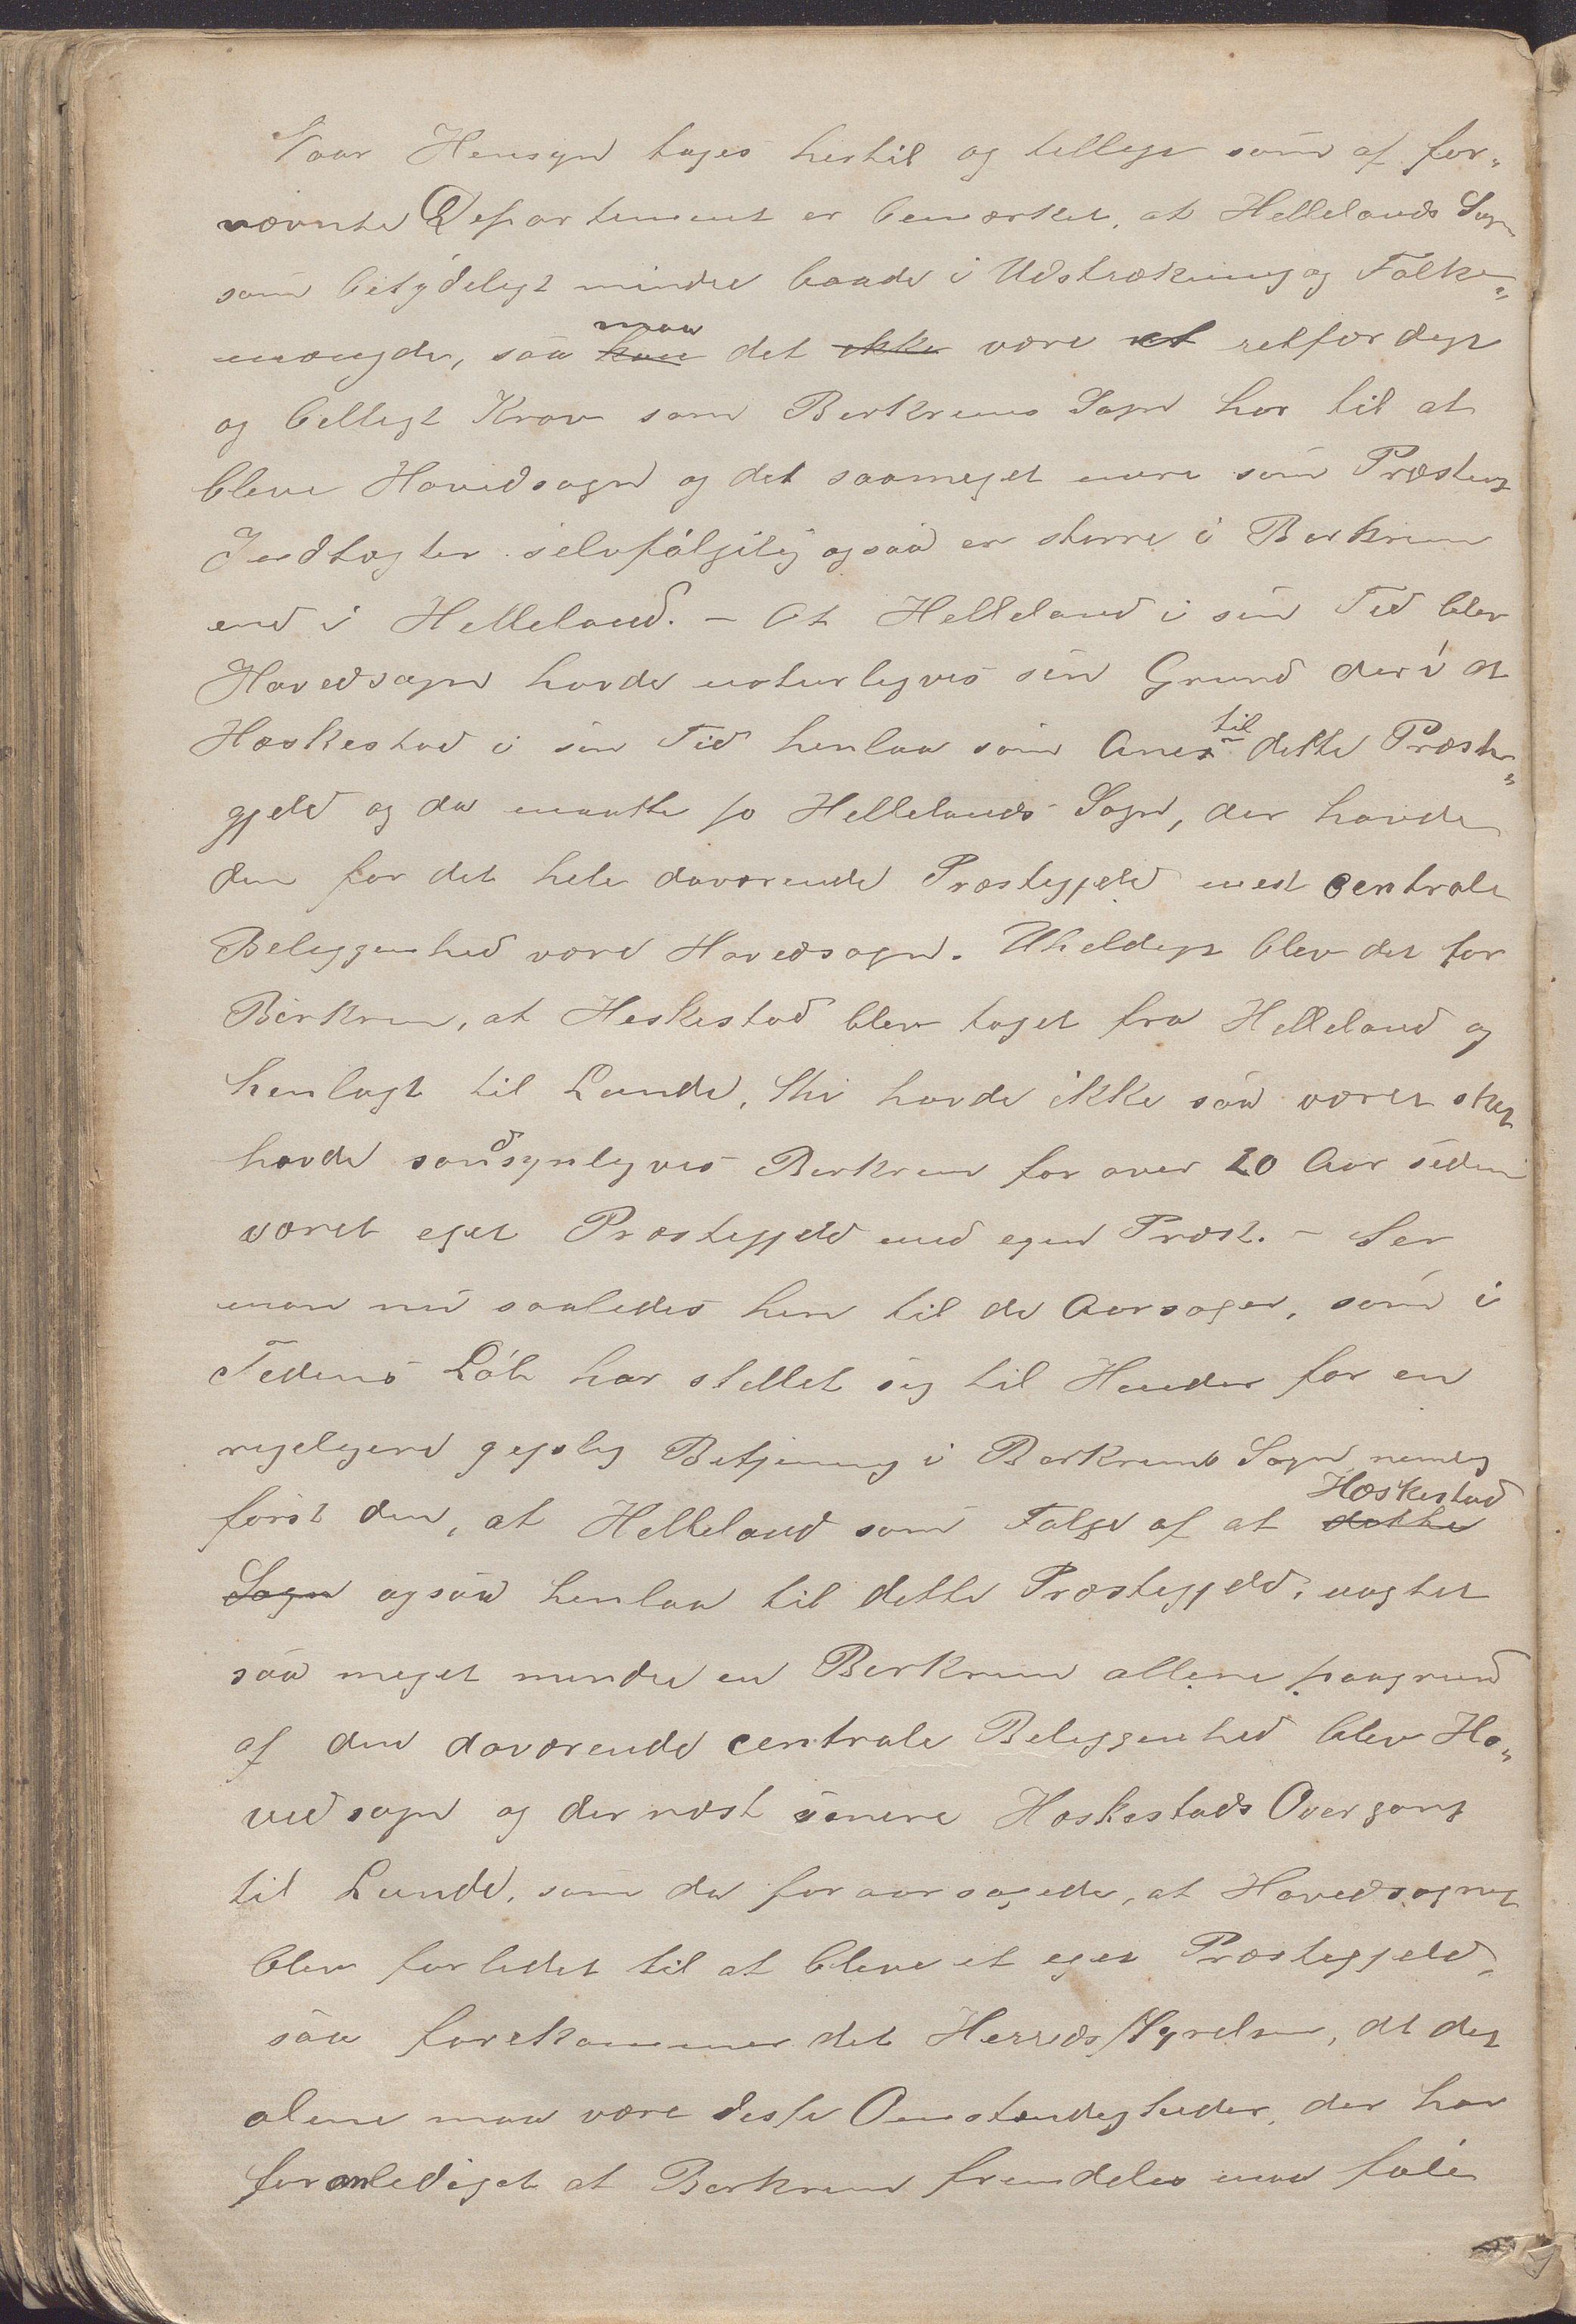 Naar Hensyn tages hertil og tillige som af for-
nævnte Departement er bemærket, at Hellelands Sogn
som betydeligt mindre baade i Udstrækning og Folke-
mængde, saa maa det være et retfærdigt
og billigt Krav som Birkrems Sogn har til at
blive Hovedsogn og det saameget mere som Præstens
Indtægter selvfølgelig ogsaa er større i Birkrem
end i Helleland. – At Helleland i sin Tid blev
Hovedsogn havde naturligvis sin Grund deri at
Heskestad i sin Tid henlaa som Anex til dette Præste-
gjeld og da maatte jo Hellelands Sogn, der havde
den for det hele daværende Præstegjeld mest centrale
Beliggenhed være Hovedsogn. Uheldigt blev det for
Birkrem, at Heskestad blev taget fra Helleland og
henlagt til Lunde, thi havde ikke saa været skeet
havde sandsynligvis Birkrem for over 20 Aar siden
været eget Præstegjeld med egen Præst. – Ser
man nu saaledes hen til de Aarsager, som i
Tidens Løb har stillet sig til Hinder for en
rigeligere geistlig Betjening i Birkrems Sogn nemlig
først den, at Helleland som Følge af at Heskestad
ogsaa henlaa til dette Præstegjeld, uagtet
saa meget mindre en Birkrem allene paagrund
af den daværende centrale Beliggenhed blev Ho-
vedsogn og dernæst senere Heskestads Overgang
til Lunde, som da foraarsagede, at Hovedsognet
blev forledet til at blive et eget Præstegjeld,
saa forekommer det Herredsstyrelsen, at det
alene maa være disse Omstændigheder, der har
foranlediget at Birkrem fremdeles maa føle